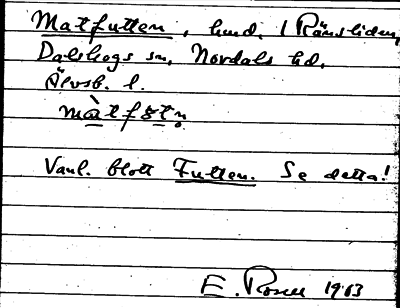 Matfutten, hund, i Rämsliden,
Dalskogs sn, Nordals hd,
Älvsb. l.
Vanl. blott Futten. Se detta!
E. Rosell 1963